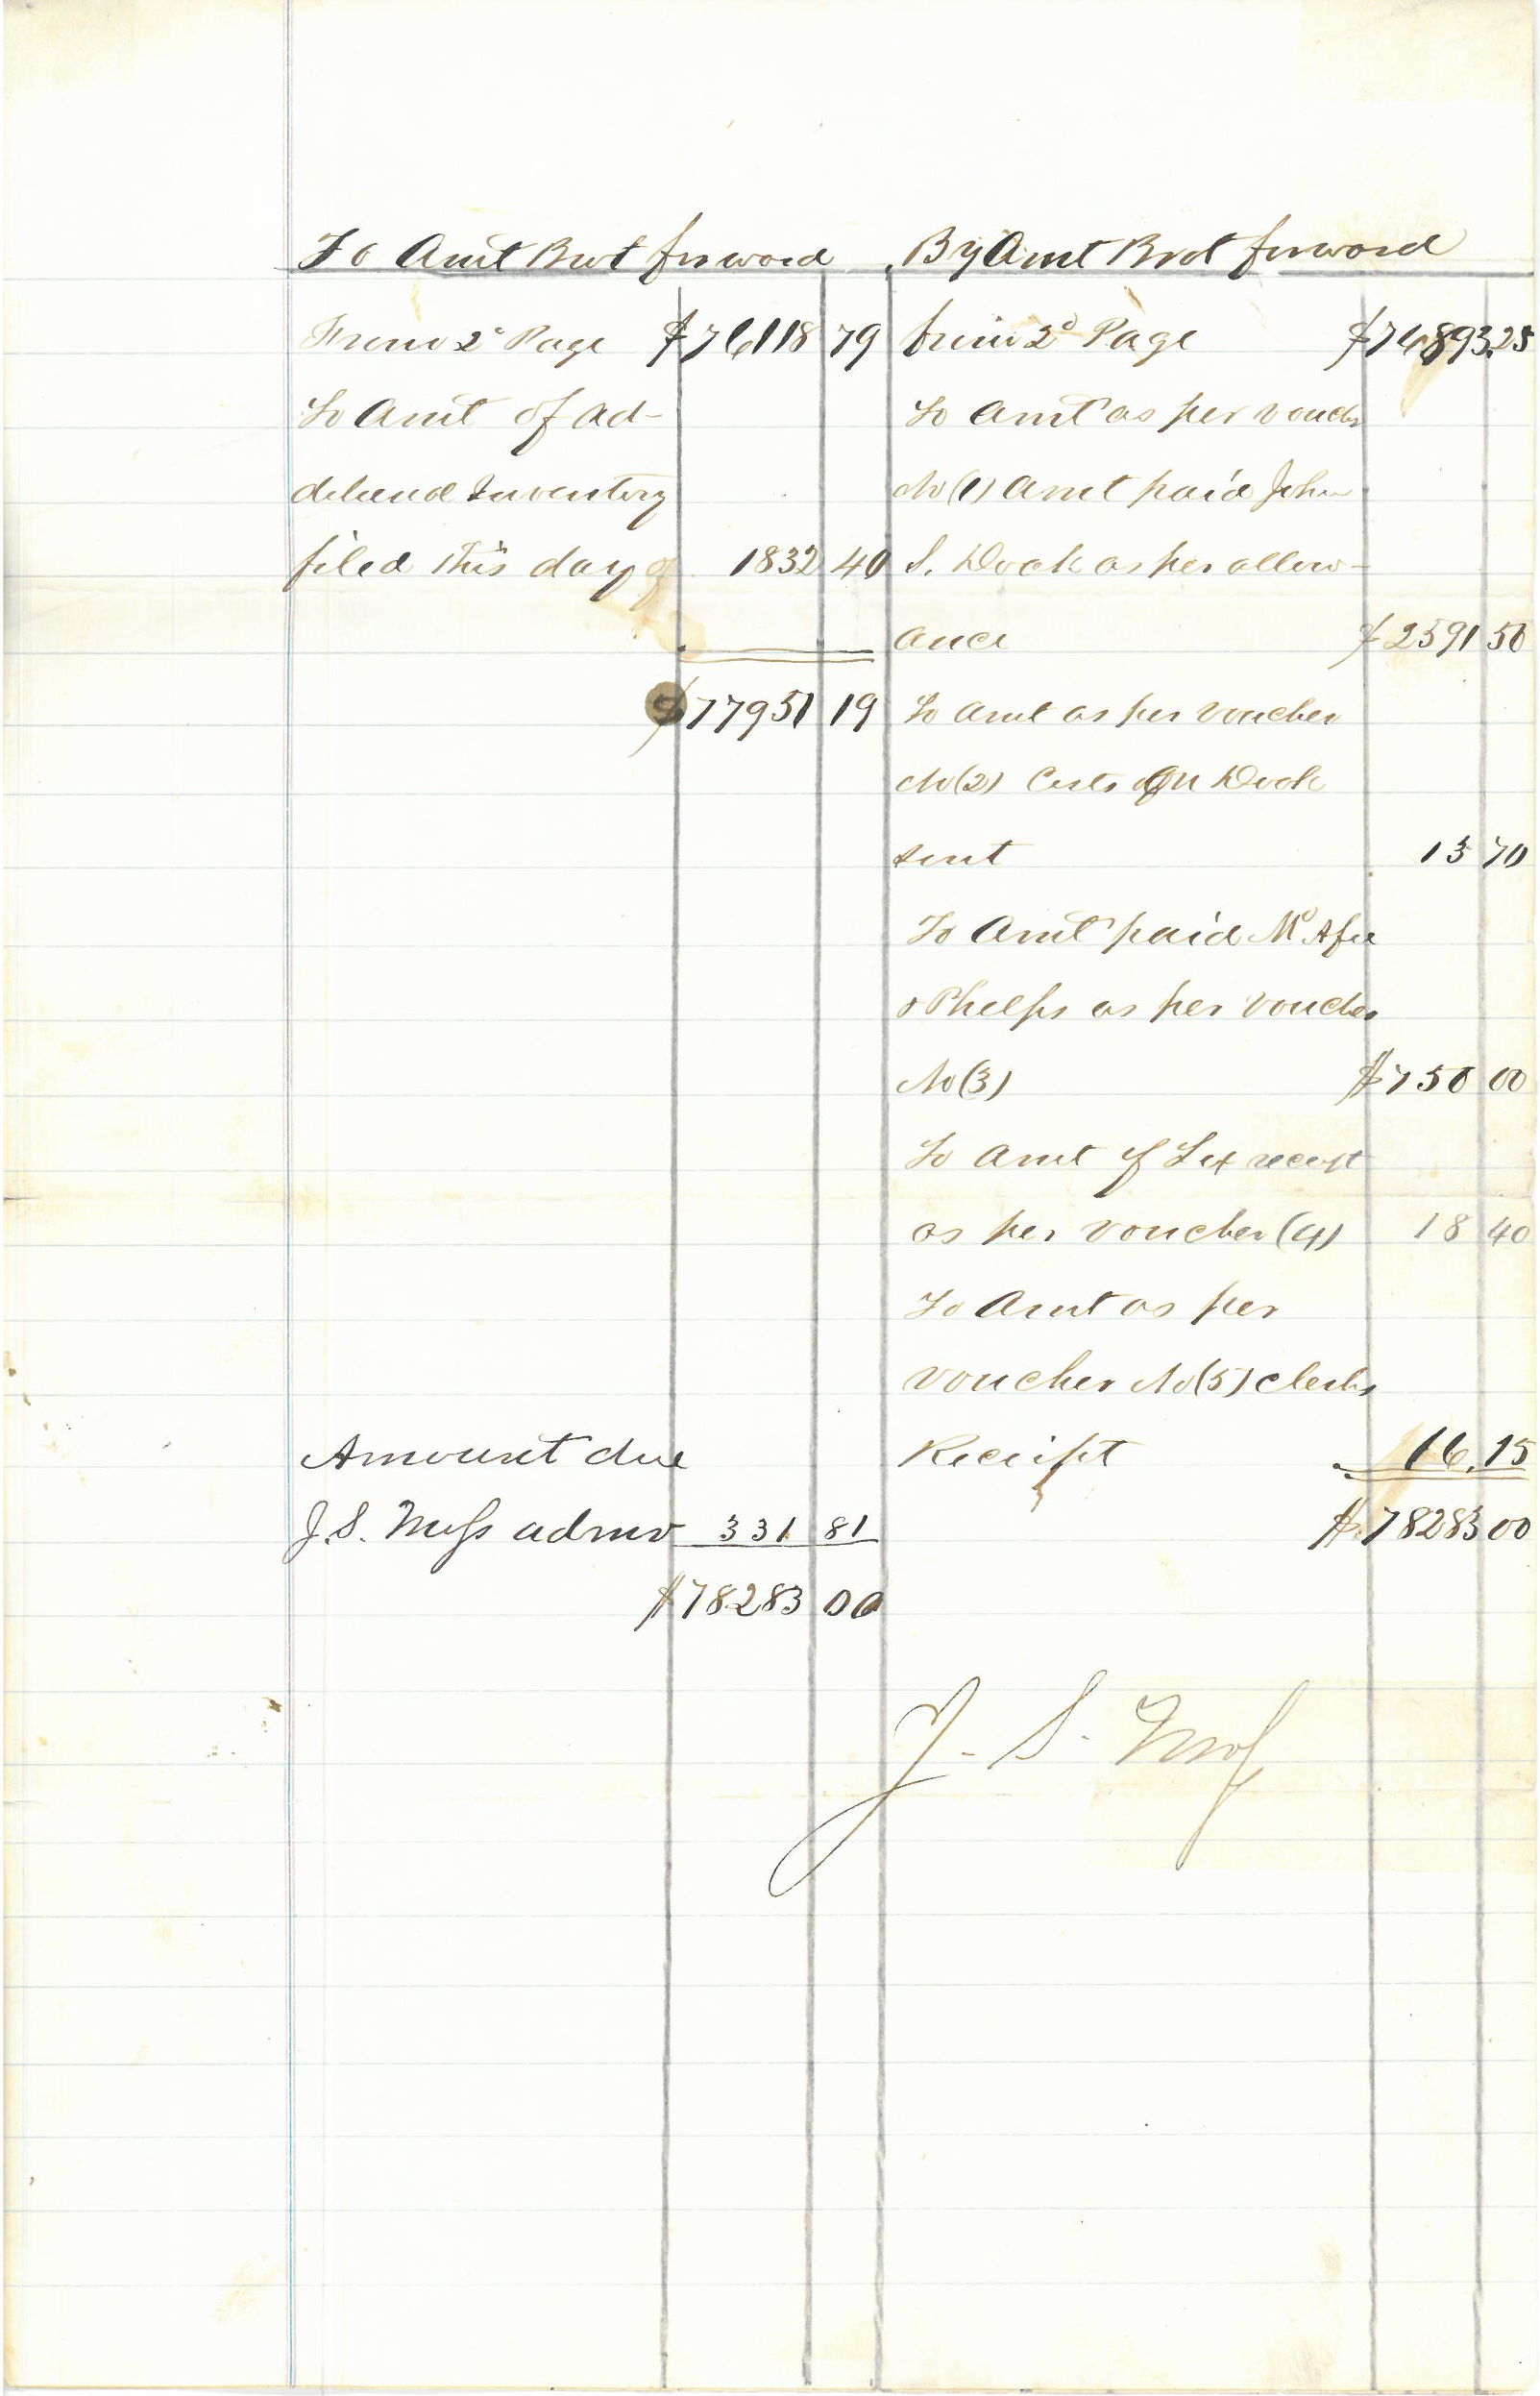 To Amt Brot forward
From 2d Page $76118 79
To Amt of ad-
diliend Inventory
filed this day of 1832 40
$77951 19
Amount due
J. S. Moss admr 331 81
$78283 00
By Amt Brot forward
from 2d Page $74893.25
To Amt as per vouchr
No (1) Amt paid John
S. Doak as per allow-
ance $2591 50
To Amt as per voucher
No (2) Costs on Doak
sent 13 70
To Amt paid McAfee
& Phelps as per voucher
No (3) $750 00
To Amt of Tax receipt
as per voucher (4) 18 40
To Amt as per
voucher No (5) clerks
Receipt 16.15
$78283 00
J. S. Moss